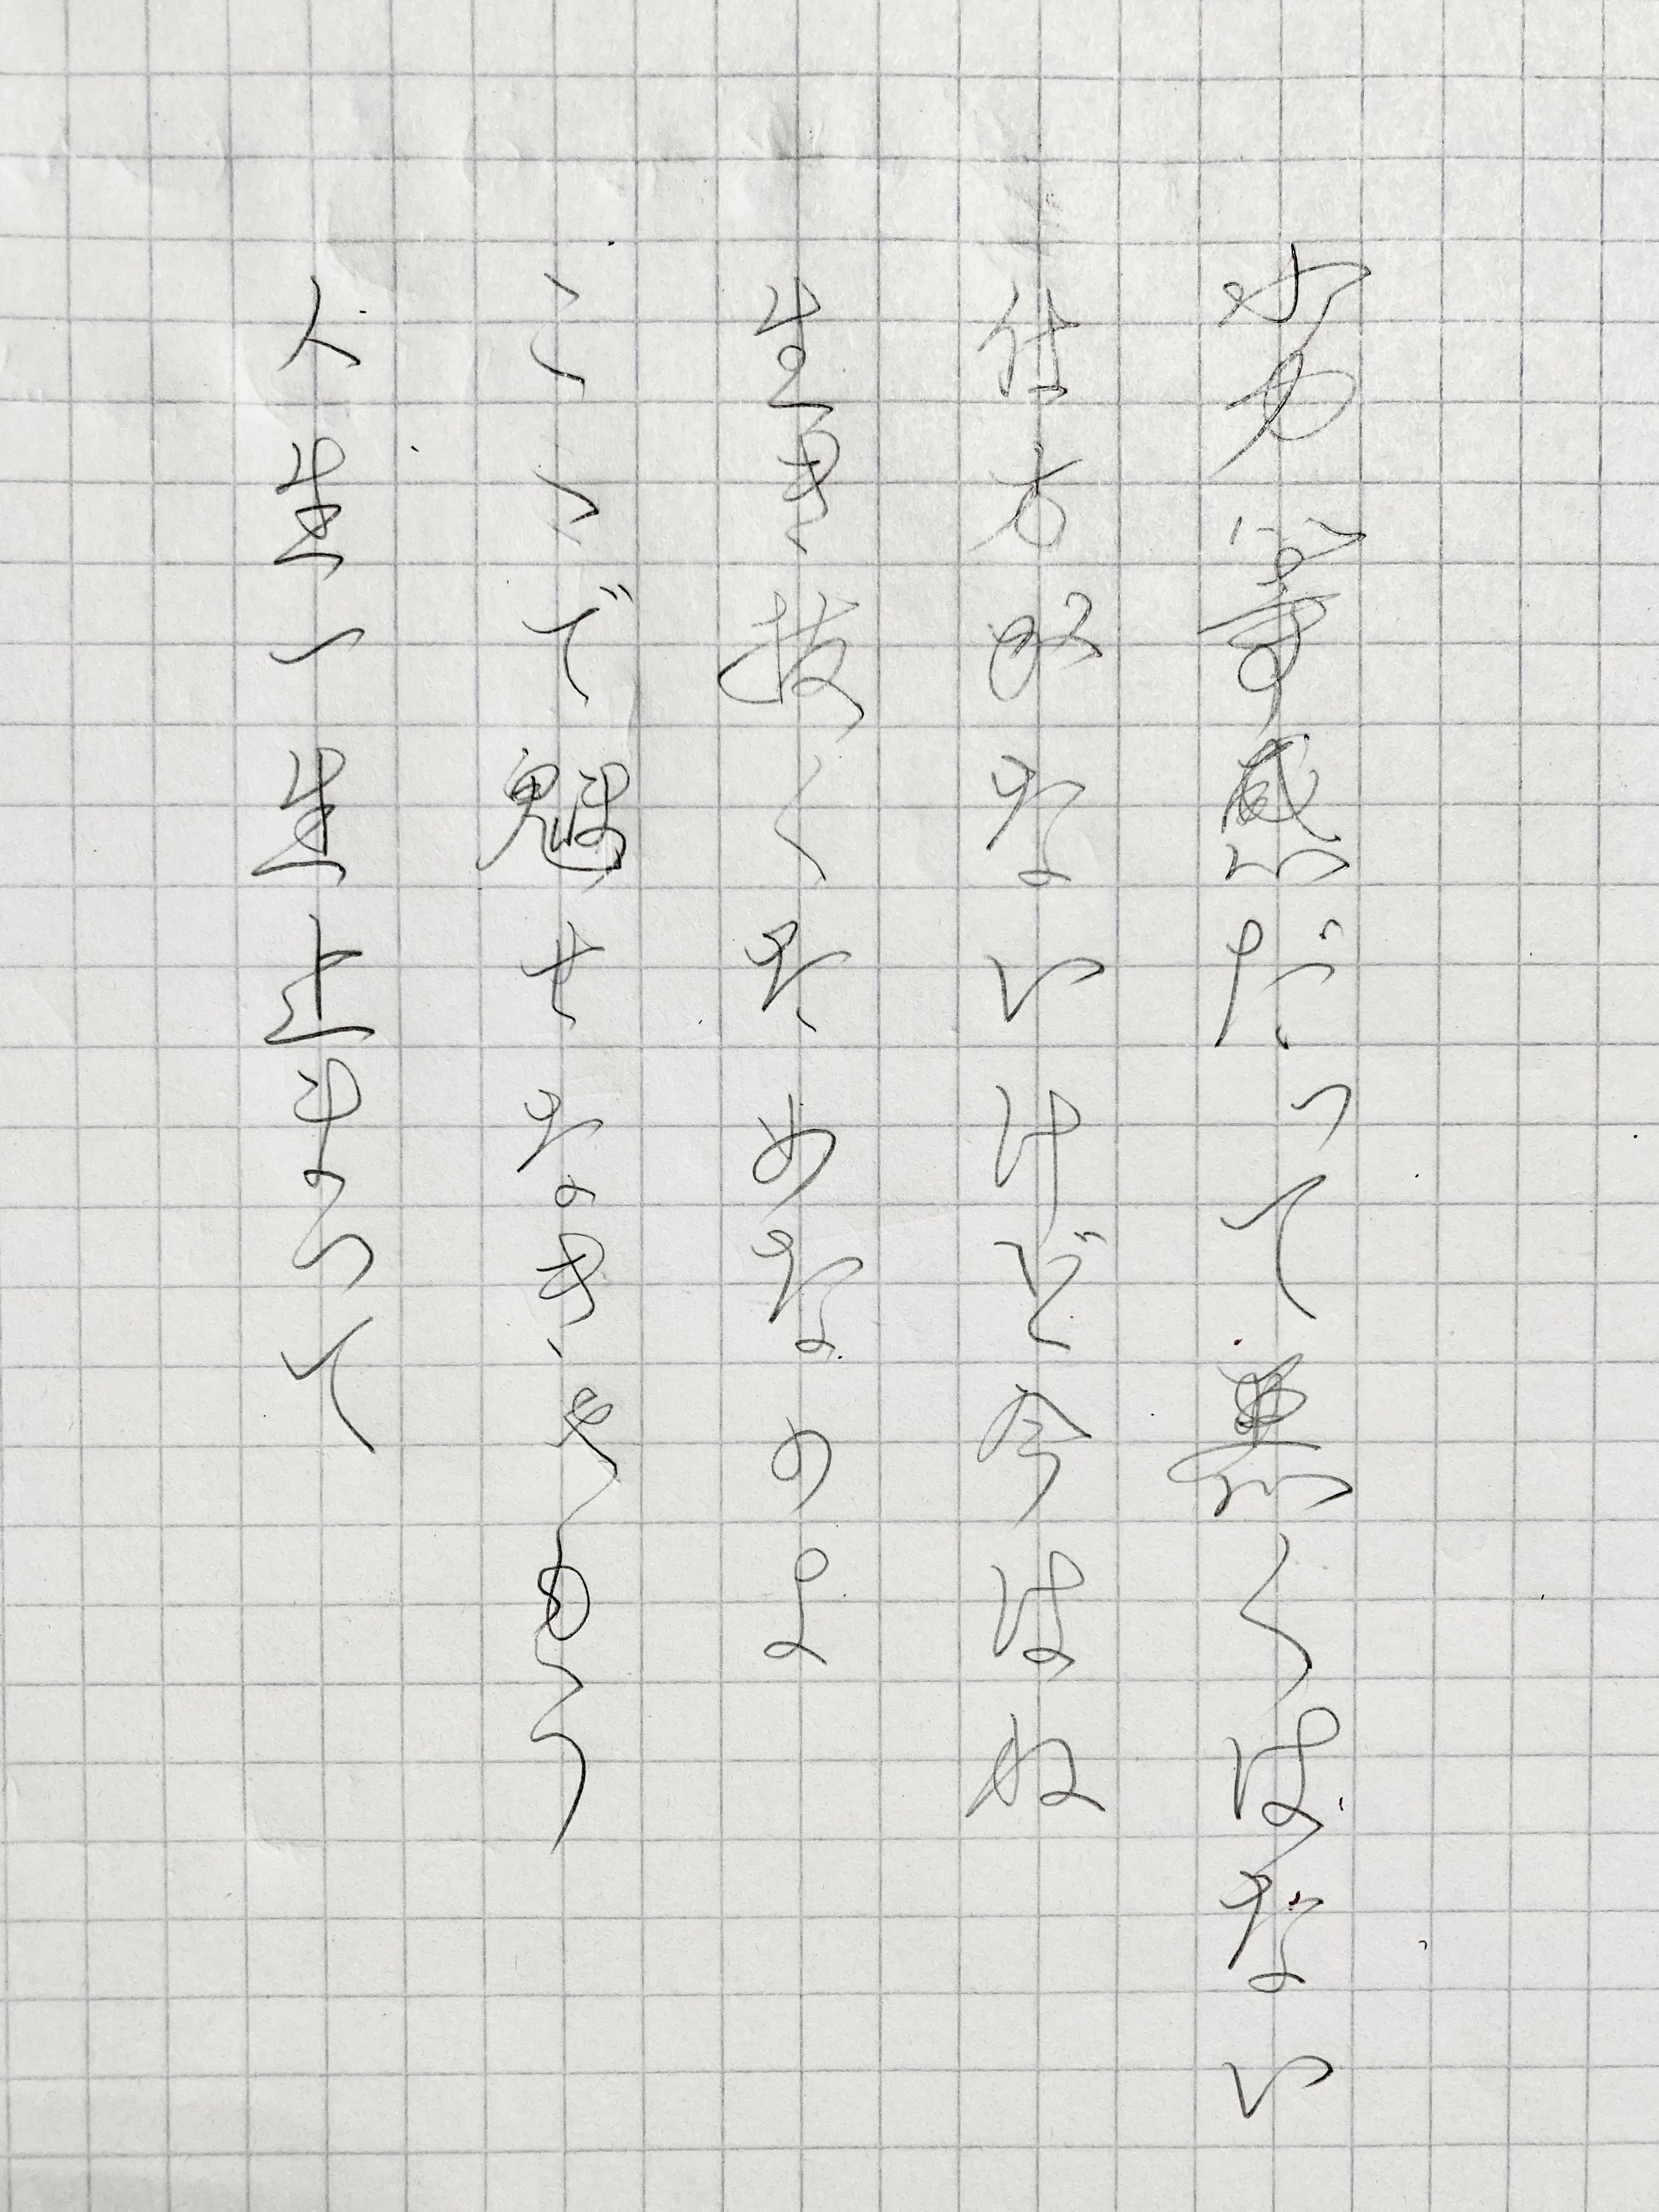 劣等感だって悪くはない
仕方ないけど今はね
生き抜くためなのよ
ここで魅せなきゃ
人生一生止まって